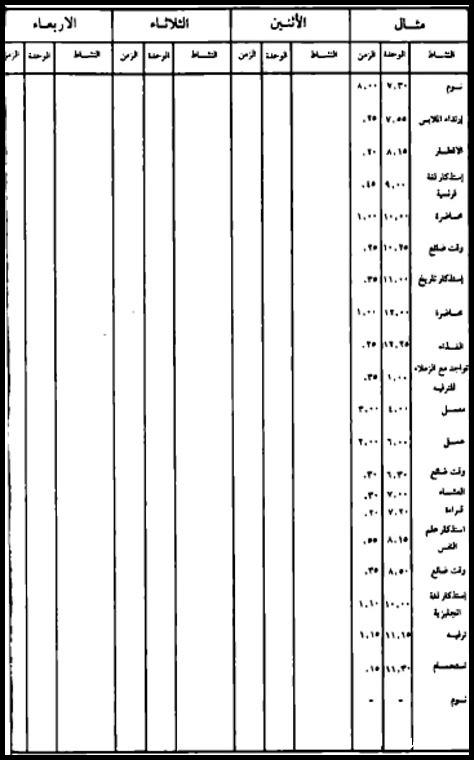 مثال الأثنين الثلاثاء الاربعاء
النشاط الوحدة الزمن النشاط الوحدة الزمن النشاط الوحدة الزمن النشاط الوحدة الزمن
نوم ٧,٣٠ ٨,٠٠
إرتداء الملابس ٧,٥٥ ,٢٥
الافطار ٨,١٥ ,٢٠
إستذكار لغة
فرنسية ٩,٠٠ ,٤٥
محاضرة ١٠,٠٠ ١,٠٠
وقت ضائع ١٠,٢٥ ,٢٥
إستذكار تاريخ ١١,٠٠ ,٣٥
محاضرة ١٢,٠٠ ١,٠٠
الغذاء ١٢,٢٥ ,٢٥
تواجد مع الزملاء
للترفيه ١,٠٠ ,٣٥
معمل ٤,٠٠ ٣,٠٠
عمل ٦,٠٠ ٢,٠٠
وقت ضائع ٦,٣٠ ,٣٠
العشاء ٧,٠٠ ,٣٠
قراءة ٧,٢٠ ,٢٠
استذكار علم
النفس ٨,١٥ ,٥٥
وقت ضائع ٨,٥٠ ,٣٥
إستذكار لغة
انجليزية ١٠,٠٠ ١,١٠
ترفيه ١١,١٥ ١,١٥
استحمام ١١,٣٠ ,١٥
نوم - -